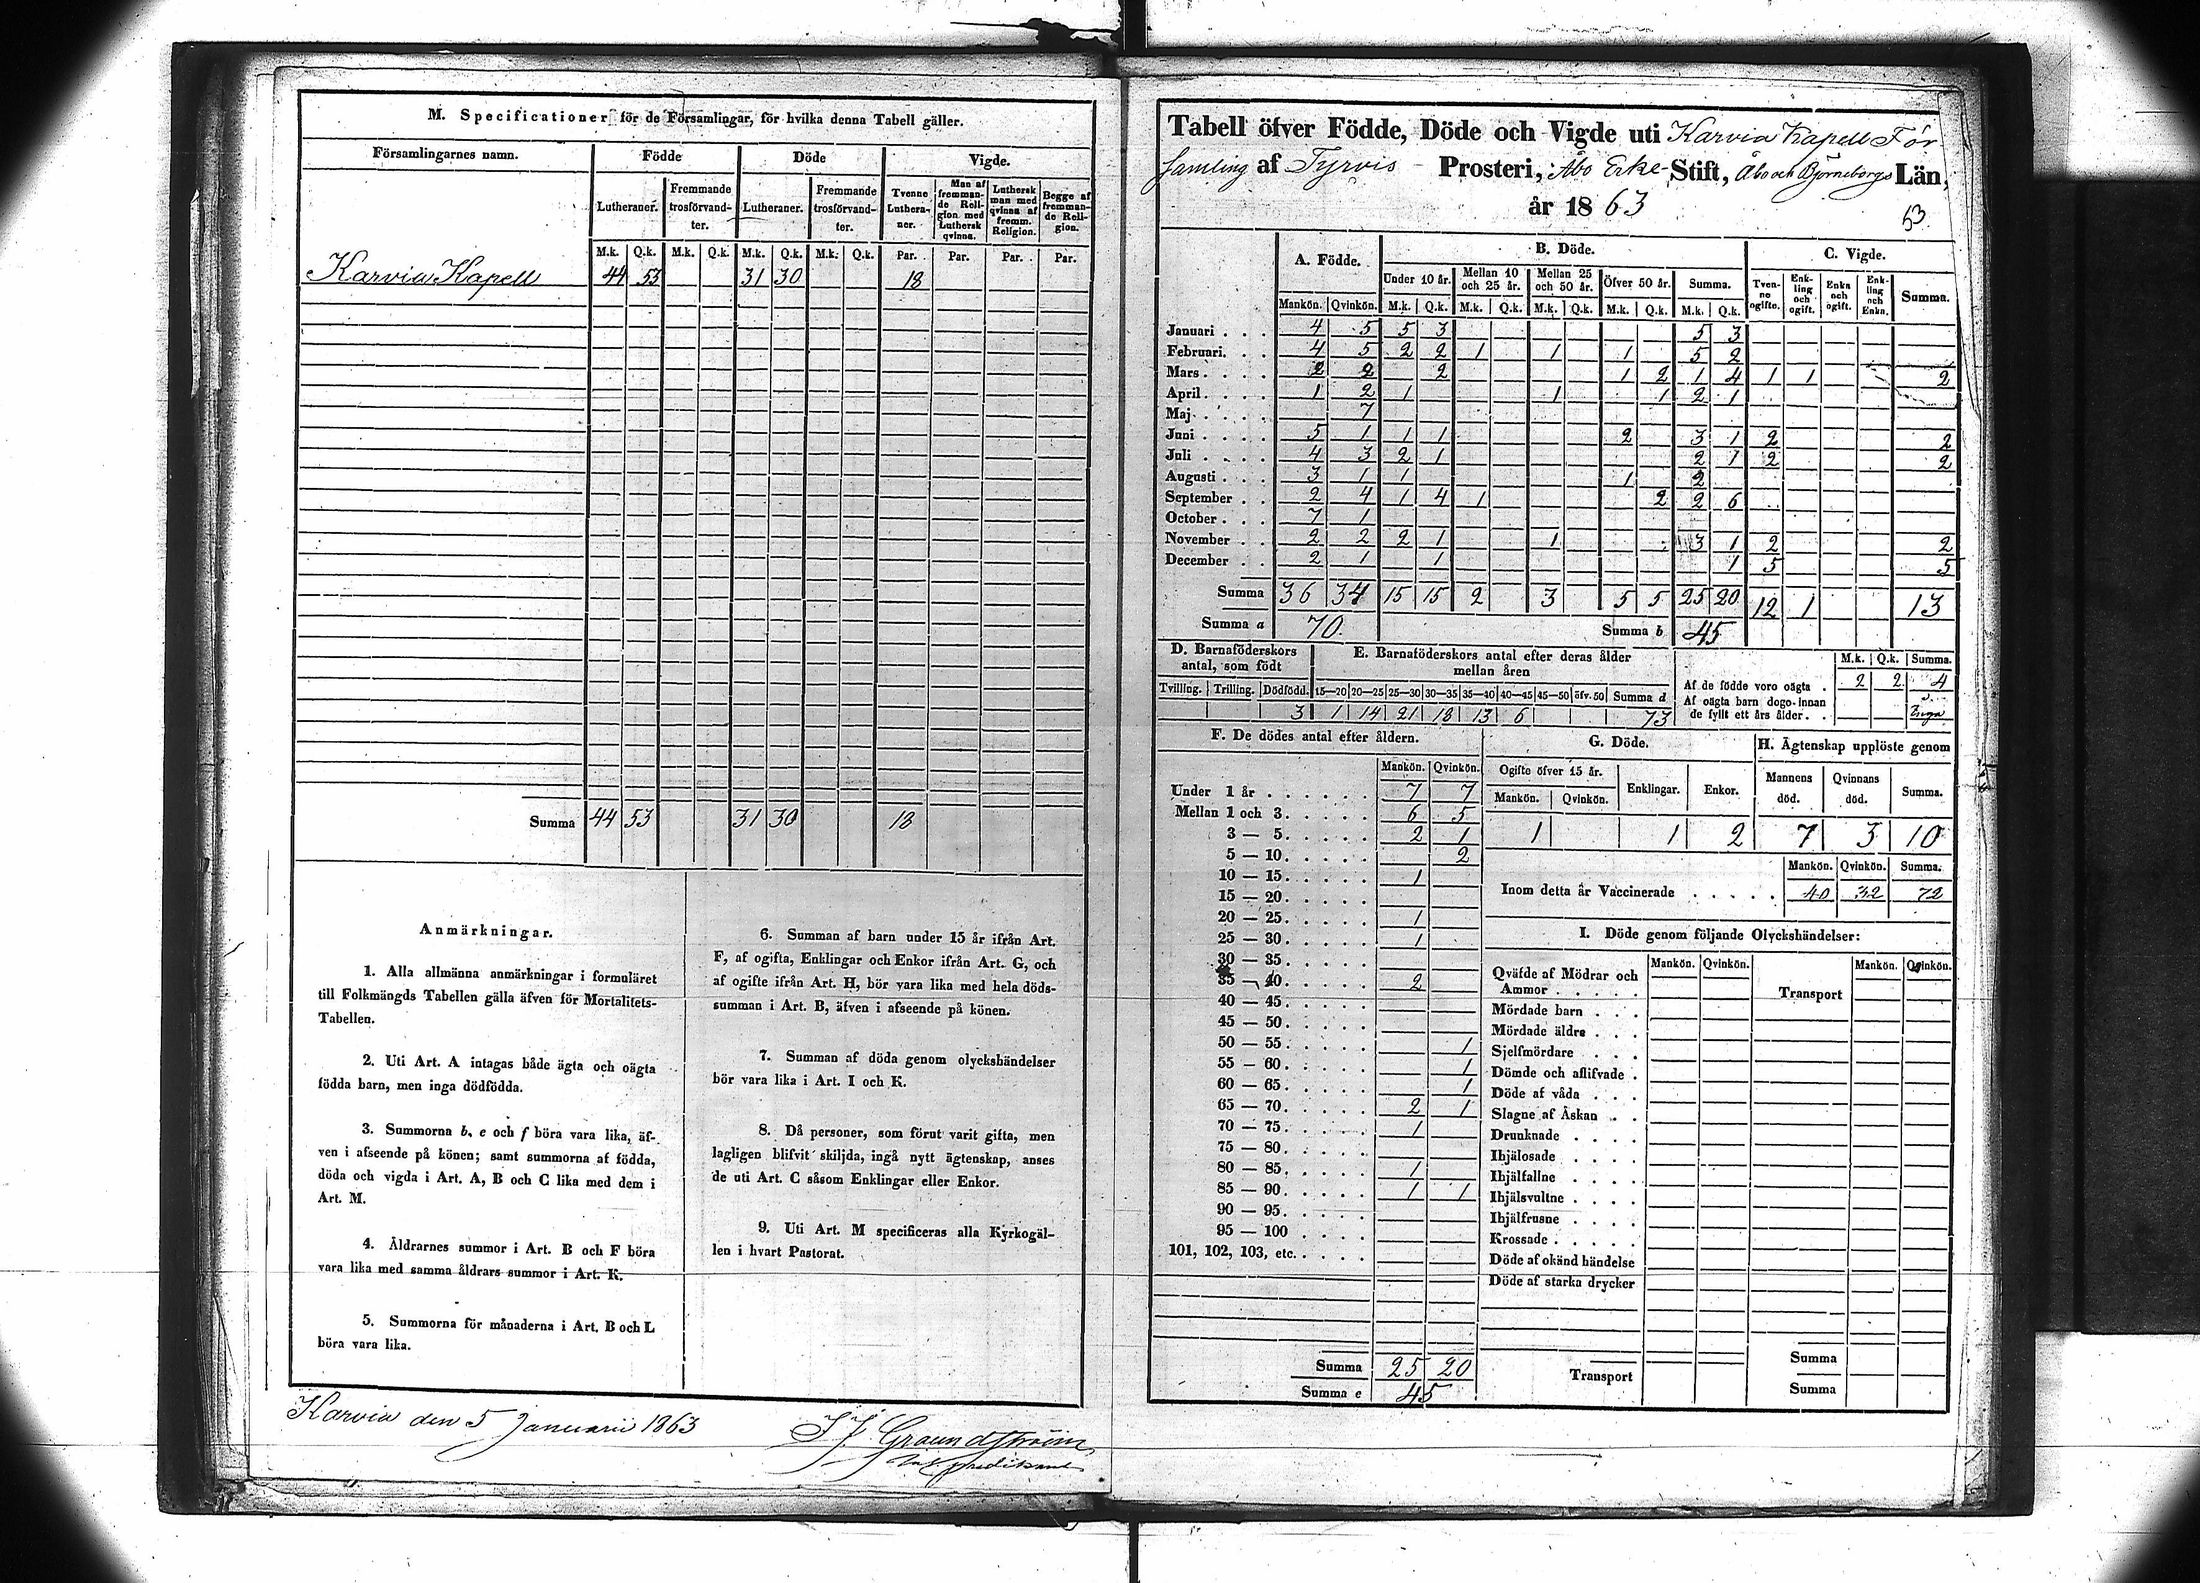 M. Specificationer för de Församlingar, för hvilka denna Tabell gäller.
Församlingarnes namn. Födde Döde Vigde.
Lutheraner. Fremmande trosförvandter. Lutheraner. Fremmande trosförvandter. Tvenne Lutheraner. Man af fremmande Religion med Luthersk qvinna. Luthersk man med qvinna af fremm. Religion. Begge af fremmande Religion.
M.k. Q.k. M.k. Q.k. M.k. Q.k. M.k. Q.k. Par. Par. Par. Par.
Karvia Kapell 44 53 31 30 18
Summa 44 53 31 30 18
Anmärkningar.
1. Alla allmänna anmärkningar i formuläret
till Folkmängds Tabellen gälla äfven för Mortalitets-
Tabellen.
2. Uti Art. A intagas både ägta och oägta
födda barn, men inga dödfödda.
3. Summorna b, e och f böra vara lika, äf-
ven i afseende på könen; samt summorna af födda,
döda och vigda i Art. A, B och C lika med dem i
Art. M.
4. Åldrarnes summor i Art. B och F böra
vara lika med samma åldrars summor i Art. K.
5. Summorna för månaderna i Art. B och L
böra vara lika.
6. Summan af barn under 15 år ifrån Art.
F, af ogifta, Enklingar och Enkor ifrån Art. G, och
af ogifte ifrån Art. H, bör vara lika med hela döds-
summan i Art. B, äfven i afseende på könen.
7. Summan af döda genom olyckshändelser
bör vara lika i Art. I och K.
8. Då personer, som förut varit gifta, men
lagligen blifvit skiljda, ingå nytt ägtenskap, anses
de uti Art. C såsom Enklingar eller Enkor.
9. Uti Art. M specificeras alla Kyrkogäl-
len i hvart Pastorat.
Karvia den 5 Januarii 1863
Tabell öfver Födde, Döde och Vigde uti Karvia Kapell För
samling af Tyrvis Prosteri, Åbo Erke- Stift, Åbo och Björneborgs Län,
år 1863
53.
A. Födde. B. Döde. C. Vigde.
Under 10 år. Mellan 10 och 25 år. Mellan 25 och 50 år. Öfver 50 år. Summa. Tvenne ogifte. Enkling och ogift. Enka och ogift. Enkling och Enka. Summa.
Mankön. Qvinkön. M.k. Q.k. M.k. Q.k. M.k. Q.k. M.k. Q.k. M.k. Q.k.
Januari 4 5 5 3 5 3
Februari. 4 5 2 2 1 1 1 5 2
Mars 2 2 2 1 2 1 4 1 1 2
April 1 2 1 1 1 2 1
Maj 7
Juni 5 1 1 1 2 3 1 2 2
Juli 4 3 2 1 2 1 2 2
Augusti 3 1 1 1 2
September 2 4 1 4 1 2 2 6
October 7 1
November 2 2 2 1 1 3 1 2 2
December 2 1 1 1 5 5
Summa 36 34 15 15 2 3 5 5 25 20 12 1 13
Summa a 70. Summa b 45
D. Barnaföderskors antal, som födt
Tvilling. Trilling. Dödfödd.
3
E. Barnaföderskors antal efter deras ålder
mellan åren
15—20 20—25 25—30 30—35 35—40 40—45 45—50 öfv. 50 Summa d
1 14 21 18 13 6 73
M.k. Q.k. Summa.
Af de födde voro oägta 2 2 4
Af oägta barn dogo innan
de fyllt ett års ålder Inga
F. De dödes antal efter åldern.
Mankön. Qvinkön.
Under 1 år 7 7
Mellan 1 och 3 6 5
3 — 5 2 1
5 — 10 2
10 — 15 1
15 — 20
20 — 25 1
25 — 30 1
30 — 35
35 — 40 2
40 — 45
45 — 50
50 — 55 1
55 — 60 1
60 — 65 1
65 — 70 2 1
70 — 75 1
75 — 80
80 — 85 1
85 — 90 1 1
90 — 95
95 — 100
101, 102, 103, etc.
Summa 25 20
Summa e 45
G. Döde.
Ogifte öfver 15 år. Enklingar. Enkor.
Mankön. Qvinkön.
1 1 2
H. Ägtenskap upplöste genom
Mannens död. Qvinnans död. Summa.
7 3 10
Mankön. Qvinkön. Summa.
Inom detta år Vaccinerade 40 32 72
I. Döde genom följande Olyckshändelser:
Mankön. Qvinkön. Mankön. Qvinkön.
Qväfde af Mödrar och
Ammor Transport
Mördade barn
Mördade äldre
Sjelfmördare
Dömde och aflifvade
Döde af våda
Slagne af Åskan
Drunknade
Ihjälosade
Ihjälfallne
Ihjälsvultne
Ihjälfrusne
Krossade
Döde af okänd händelse
Döde af starka drycker
Summa
Transport Summa